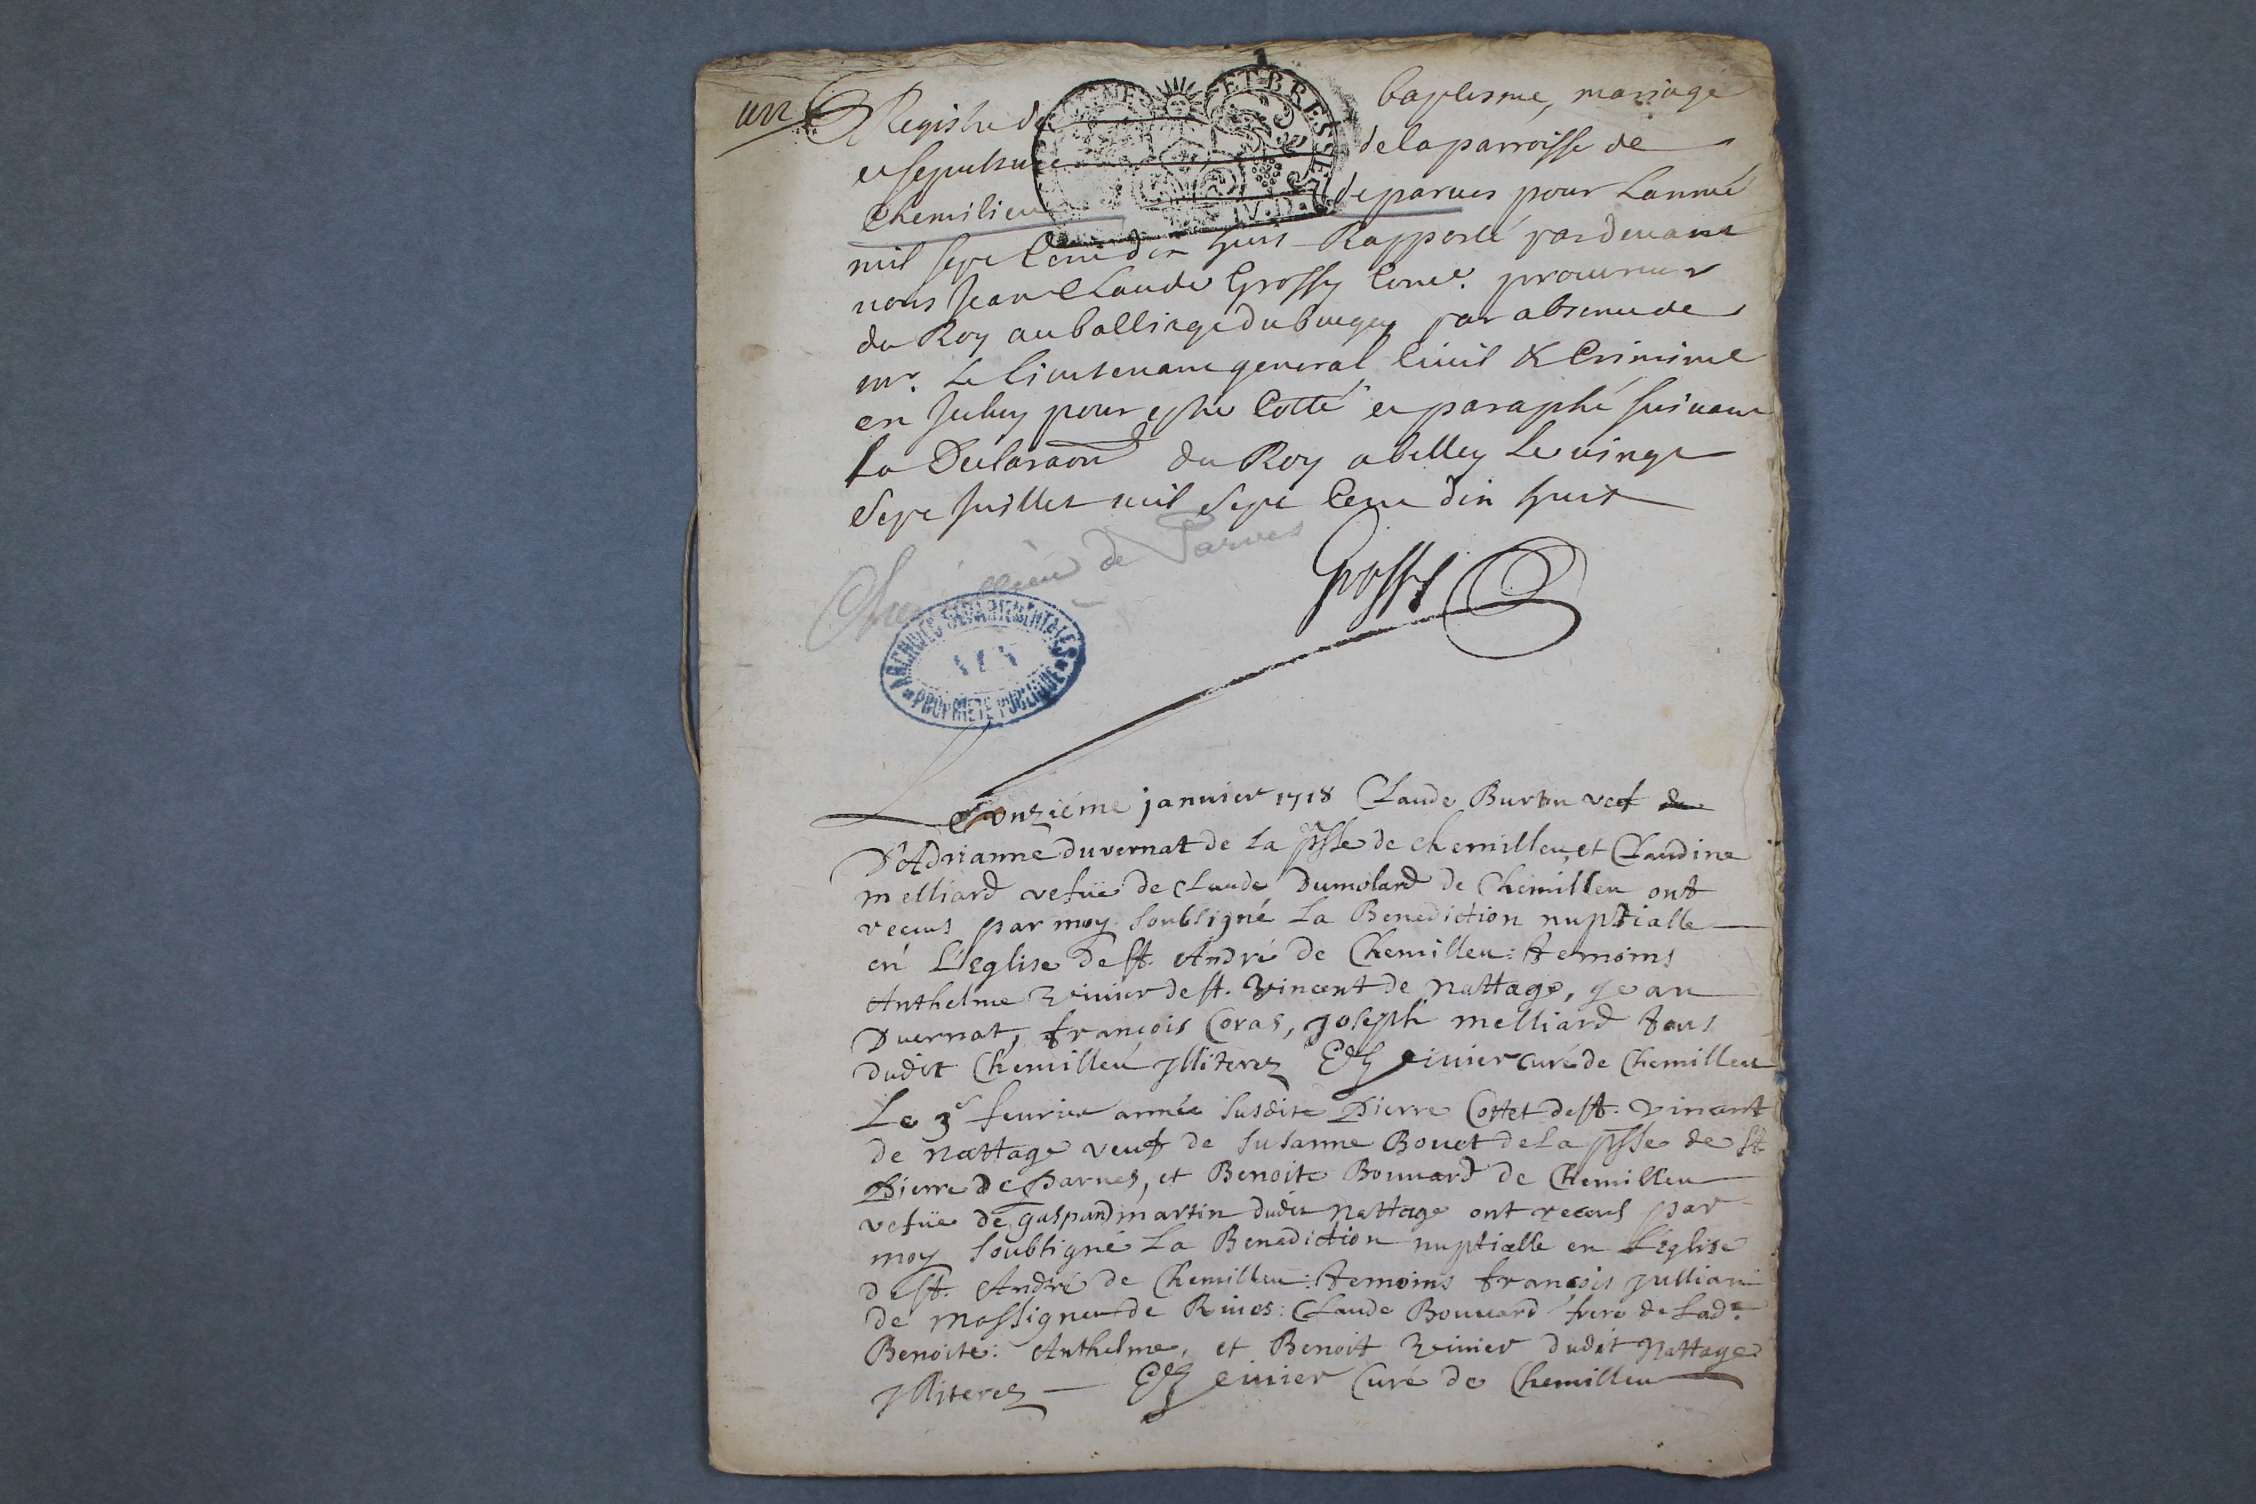 un Registre de baptesme, mariage
et sepulture de la parroisse de
Chemilieu de parves pour Lannué
mil sept Cent dix huit Rapporté pardevant
nous Jean Claude Grossy Coner. procureur
du Roy au balliage du bugey par absence de
mr. Le lieutenant general Civil & Criminel
en Iceluy pour estre Cotté et paraphé suivant
La Declaraon du Roy a belley Le vingt
Sept Juillet mil Sept Cent dix huit
Grossy
Chemillieu de Parves
ARCHIVES DÉPARTEMENTALES
AIN
PROPRIÉTÉ PUBLIQUE
ET BRESSE
Le onzième janvier 1718 Claude Burtin vef de
D'Adrianne duvernat de La psse de chemilleu, et Claudine
melliard vefüe de Claude Dumolard de Chemilleu ont
receus par moy soubsigné La Benediction nuptialle
en L'Eglise de st. André de Chemilleu: temoins
Anthelme Vivier de st. Vincent de nattage, jean
Duernat, françois Coras, joseph melliard tous
dudit Chemilleu jlliterez Vivier curé de Chemilleu
Le 3e feurier année susdite Pierre Cottet de st. Vincent
de nattage veuf de susanne Bouet de La psse de st
Pierre de Parues, et Benoite Bouuard de Chemilleu
vefüe de gaspard martin dudit nattage ont receus par
moy soubsigné La Benediction nuptialle en L'Eglise
de st. André de Chemilleu: temoins françois jullian
de massigneu de Riues: Claude Bouuard frere de Lade.
Benoite: Anthelme, et Benoit Vivier dudit nattage
jlliterez Vivier Curé de Chemilleu